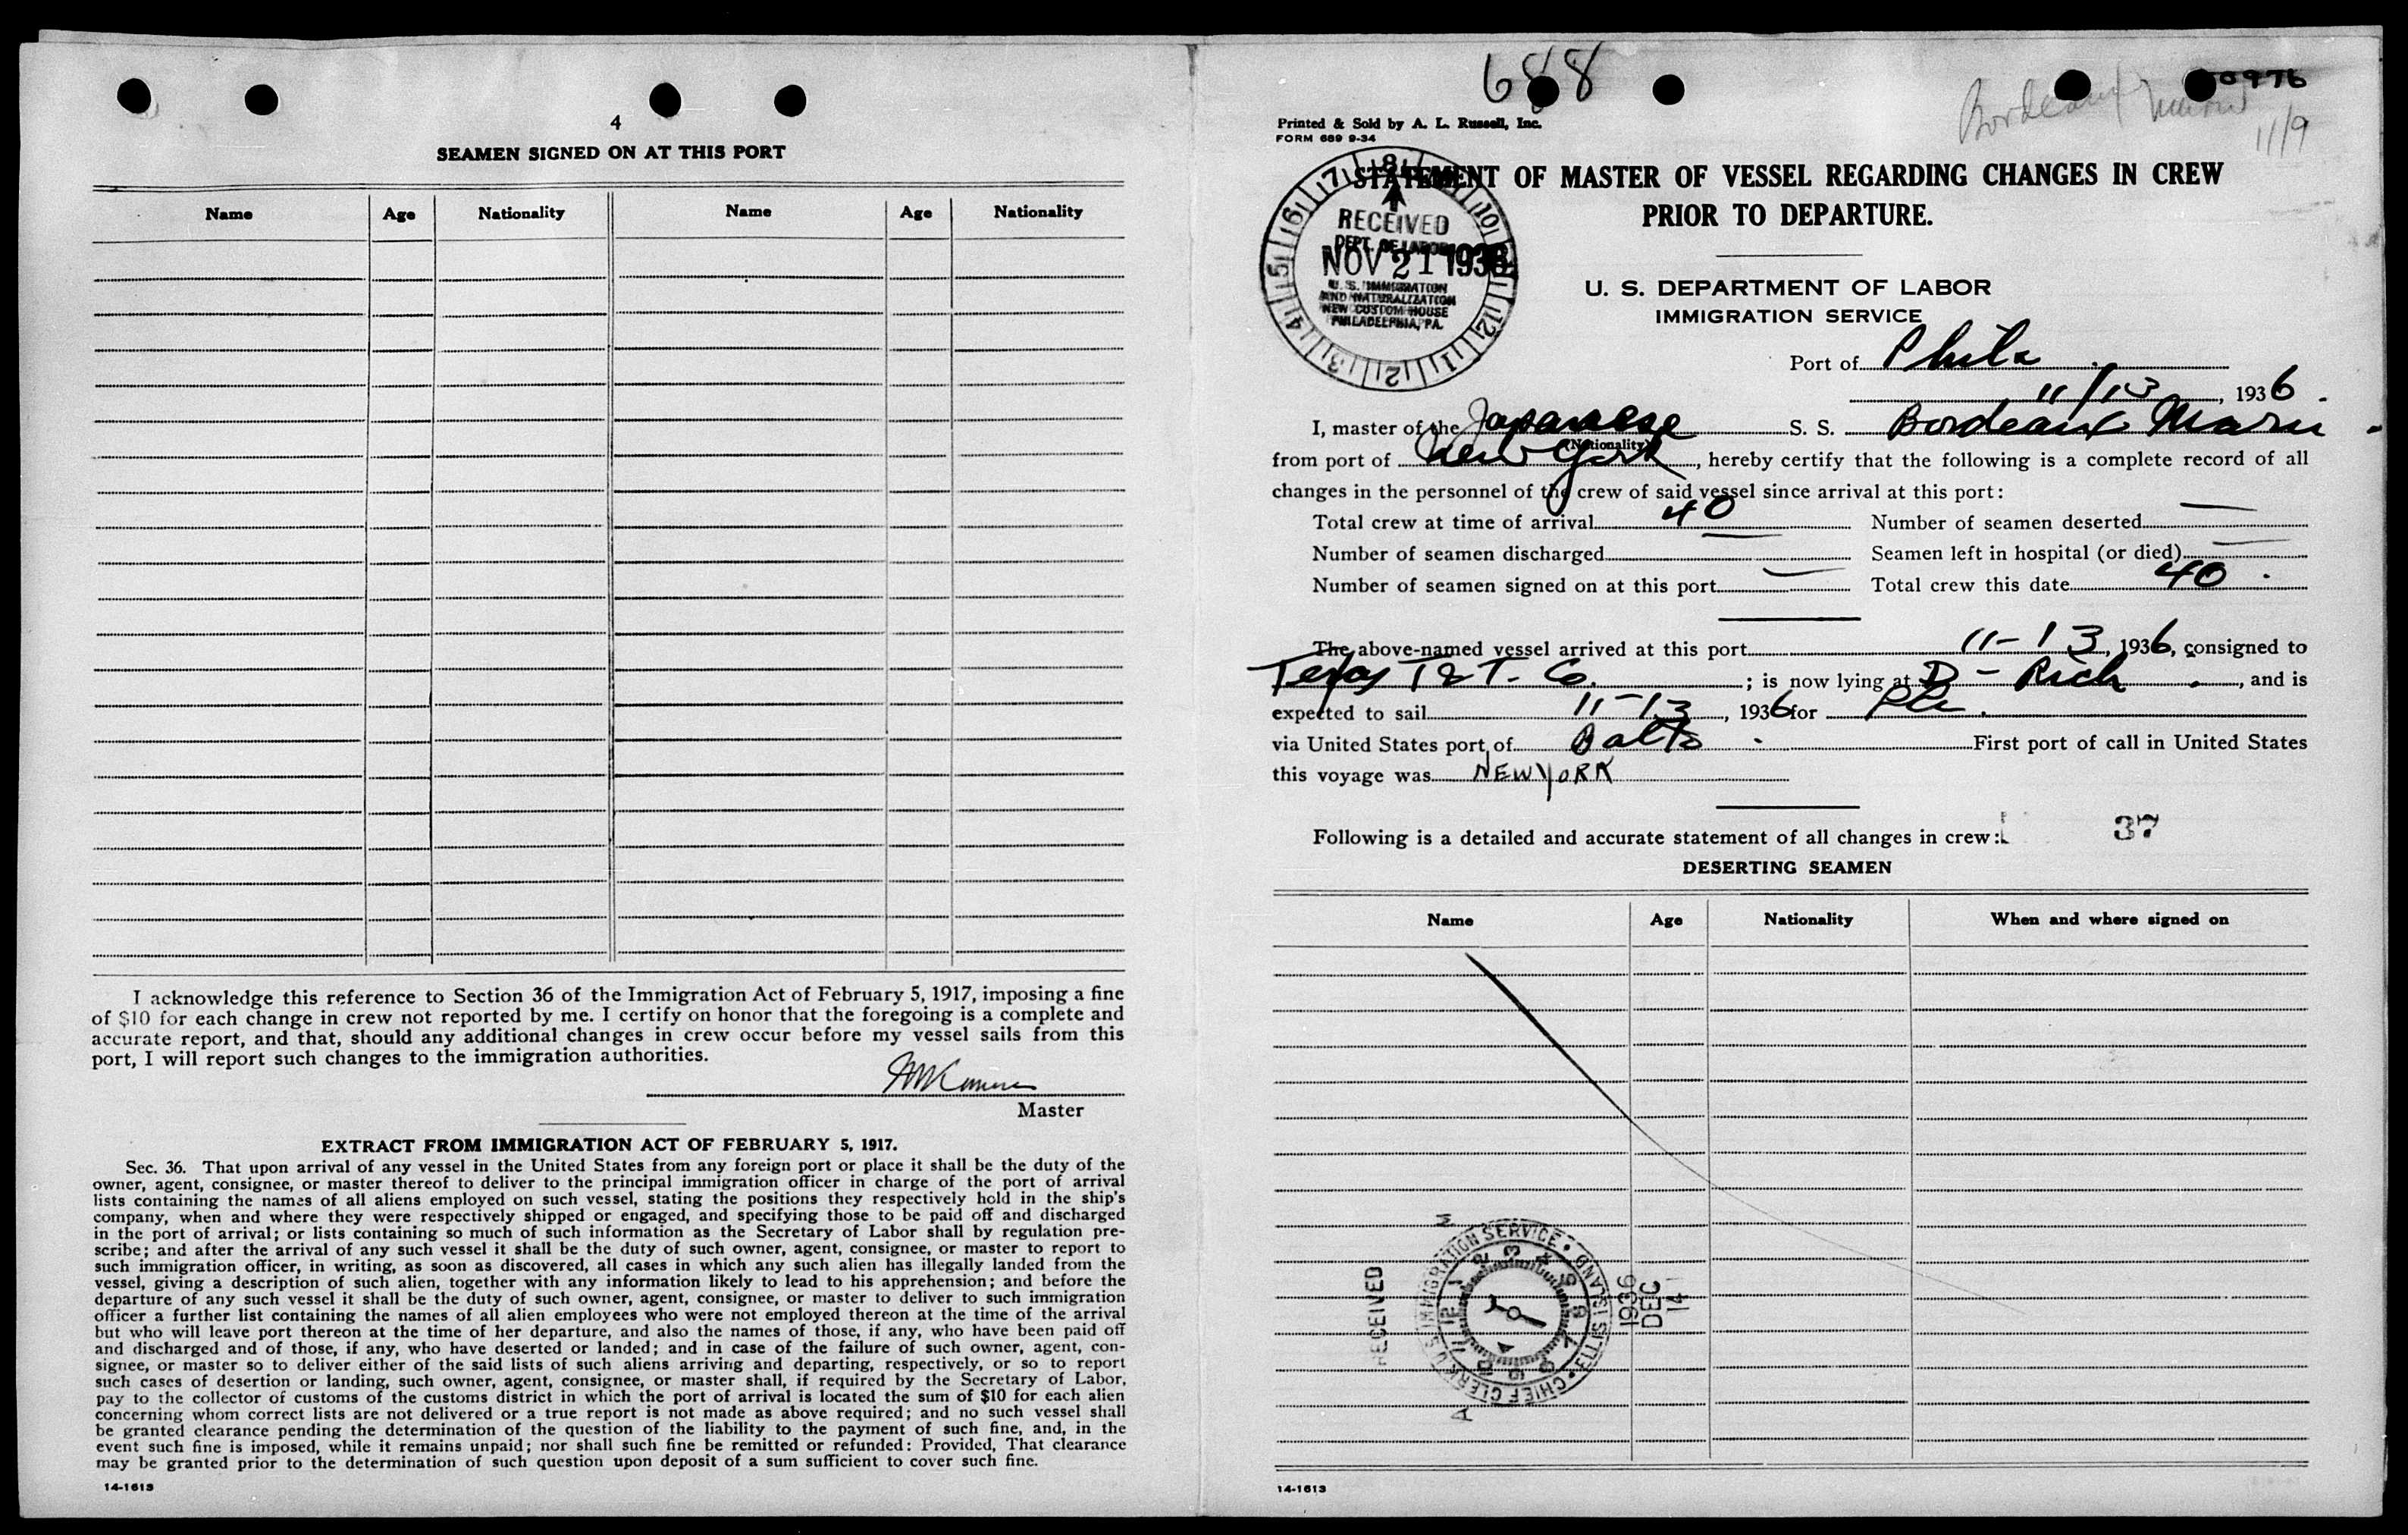 4
SEAMEN SIGNED ON AT THIS PORT
Name Age Nationality Name Age Nationality
I acknowledge this reference to Section 36 of the Immigration Act of February 5, 1917, imposing a fine
of $10 for each change in crew not reported by me. I certify on honor that the foregoing is a complete and
accurate report, and that, should any additional changes in crew occur before my vessel sails from this
port, I will report such changes to the immigration authorities.
Master
EXTRACT FROM IMMIGRATION ACT OF FEBRUARY 5, 1917.
Sec. 36. That upon arrival of any vessel in the United States from any foreign port or place it shall be the duty of the
owner, agent, consignee, or master thereof to deliver to the principal immigration officer in charge of the port of arrival
lists containing the names of all aliens employed on such vessel, stating the positions they respectively hold in the ship's
company, when and where they were respectively shipped or engaged, and specifying those to be paid off and discharged
in the port of arrival; or lists containing so much of such information as the Secretary of Labor shall by regulation pre-
scribe; and after the arrival of any such vessel it shall be the duty of such owner, agent, consignee, or master to report to
such immigration officer, in writing, as soon as discovered, all cases in which any such alien has illegally landed from the
vessel, giving a description of such alien, together with any information likely to lead to his apprehension; and before the
departure of any such vessel it shall be the duty of such owner, agent, consignee, or master to deliver to such immigration
officer a further list containing the names of all alien employees who were not employed thereon at the time of the arrival
but who will leave port thereon at the time of her departure, and also the names of those, if any, who have been paid off
and discharged and of those, if any, who have deserted or landed; and in case of the failure of such owner, agent, con-
signee, or master so to deliver either of the said lists of such aliens arriving and departing, respectively, or so to report
such cases of desertion or landing, such owner, agent, consignee, or master shall, if required by the Secretary of Labor,
pay to the collector of customs of the customs district in which the port of arrival is located the sum of $10 for each alien
concerning whom correct lists are not delivered or a true report is not made as above required; and no such vessel shall
be granted clearance pending the determination of the question of the liability to the payment of such fine, and, in the
event such fine is imposed, while it remains unpaid; nor shall such fine be remitted or refunded: Provided, That clearance
may be granted prior to the determination of such question upon deposit of a sum sufficient to cover such fine.
14-1613
688
0976
Bordeaux Maru
11/9
Printed & Sold by A. L. Russell, Inc.
FORM 689 9-34
STATEMENT OF MASTER OF VESSEL REGARDING CHANGES IN CREW
PRIOR TO DEPARTURE.
RECEIVED
DEPT. OF LABOR
NOV 21 1936
U. S. IMMIGRATION
AND NATURALIZATION
NEW CUSTOM HOUSE
PHILADELPHIA, PA.
U. S. DEPARTMENT OF LABOR
IMMIGRATION SERVICE
Port of Phila
11/13, 1936
I, master of the Japanese S. S. Bordeaux Maru
(Nationality)
from port of New York, hereby certify that the following is a complete record of all
changes in the personnel of the crew of said vessel since arrival at this port:
Total crew at time of arrival 40 Number of seamen deserted —
Number of seamen discharged — Seamen left in hospital (or died) —
Number of seamen signed on at this port — Total crew this date 40
The above-named vessel arrived at this port 11-13, 1936, consigned to
Texas T & T. Co.; is now lying at P - Rich, and is
expected to sail 11-13, 1936 for
via United States port of Balto First port of call in United States
this voyage was NEW YORK
Following is a detailed and accurate statement of all changes in crew: 37
DESERTING SEAMEN
Name Age Nationality When and where signed on
RECEIVED
CHIEF CLERK U S IMMIGRATION SERVICE • ELLIS ISLAND •
1936
DEC
14
A
M
14-1613